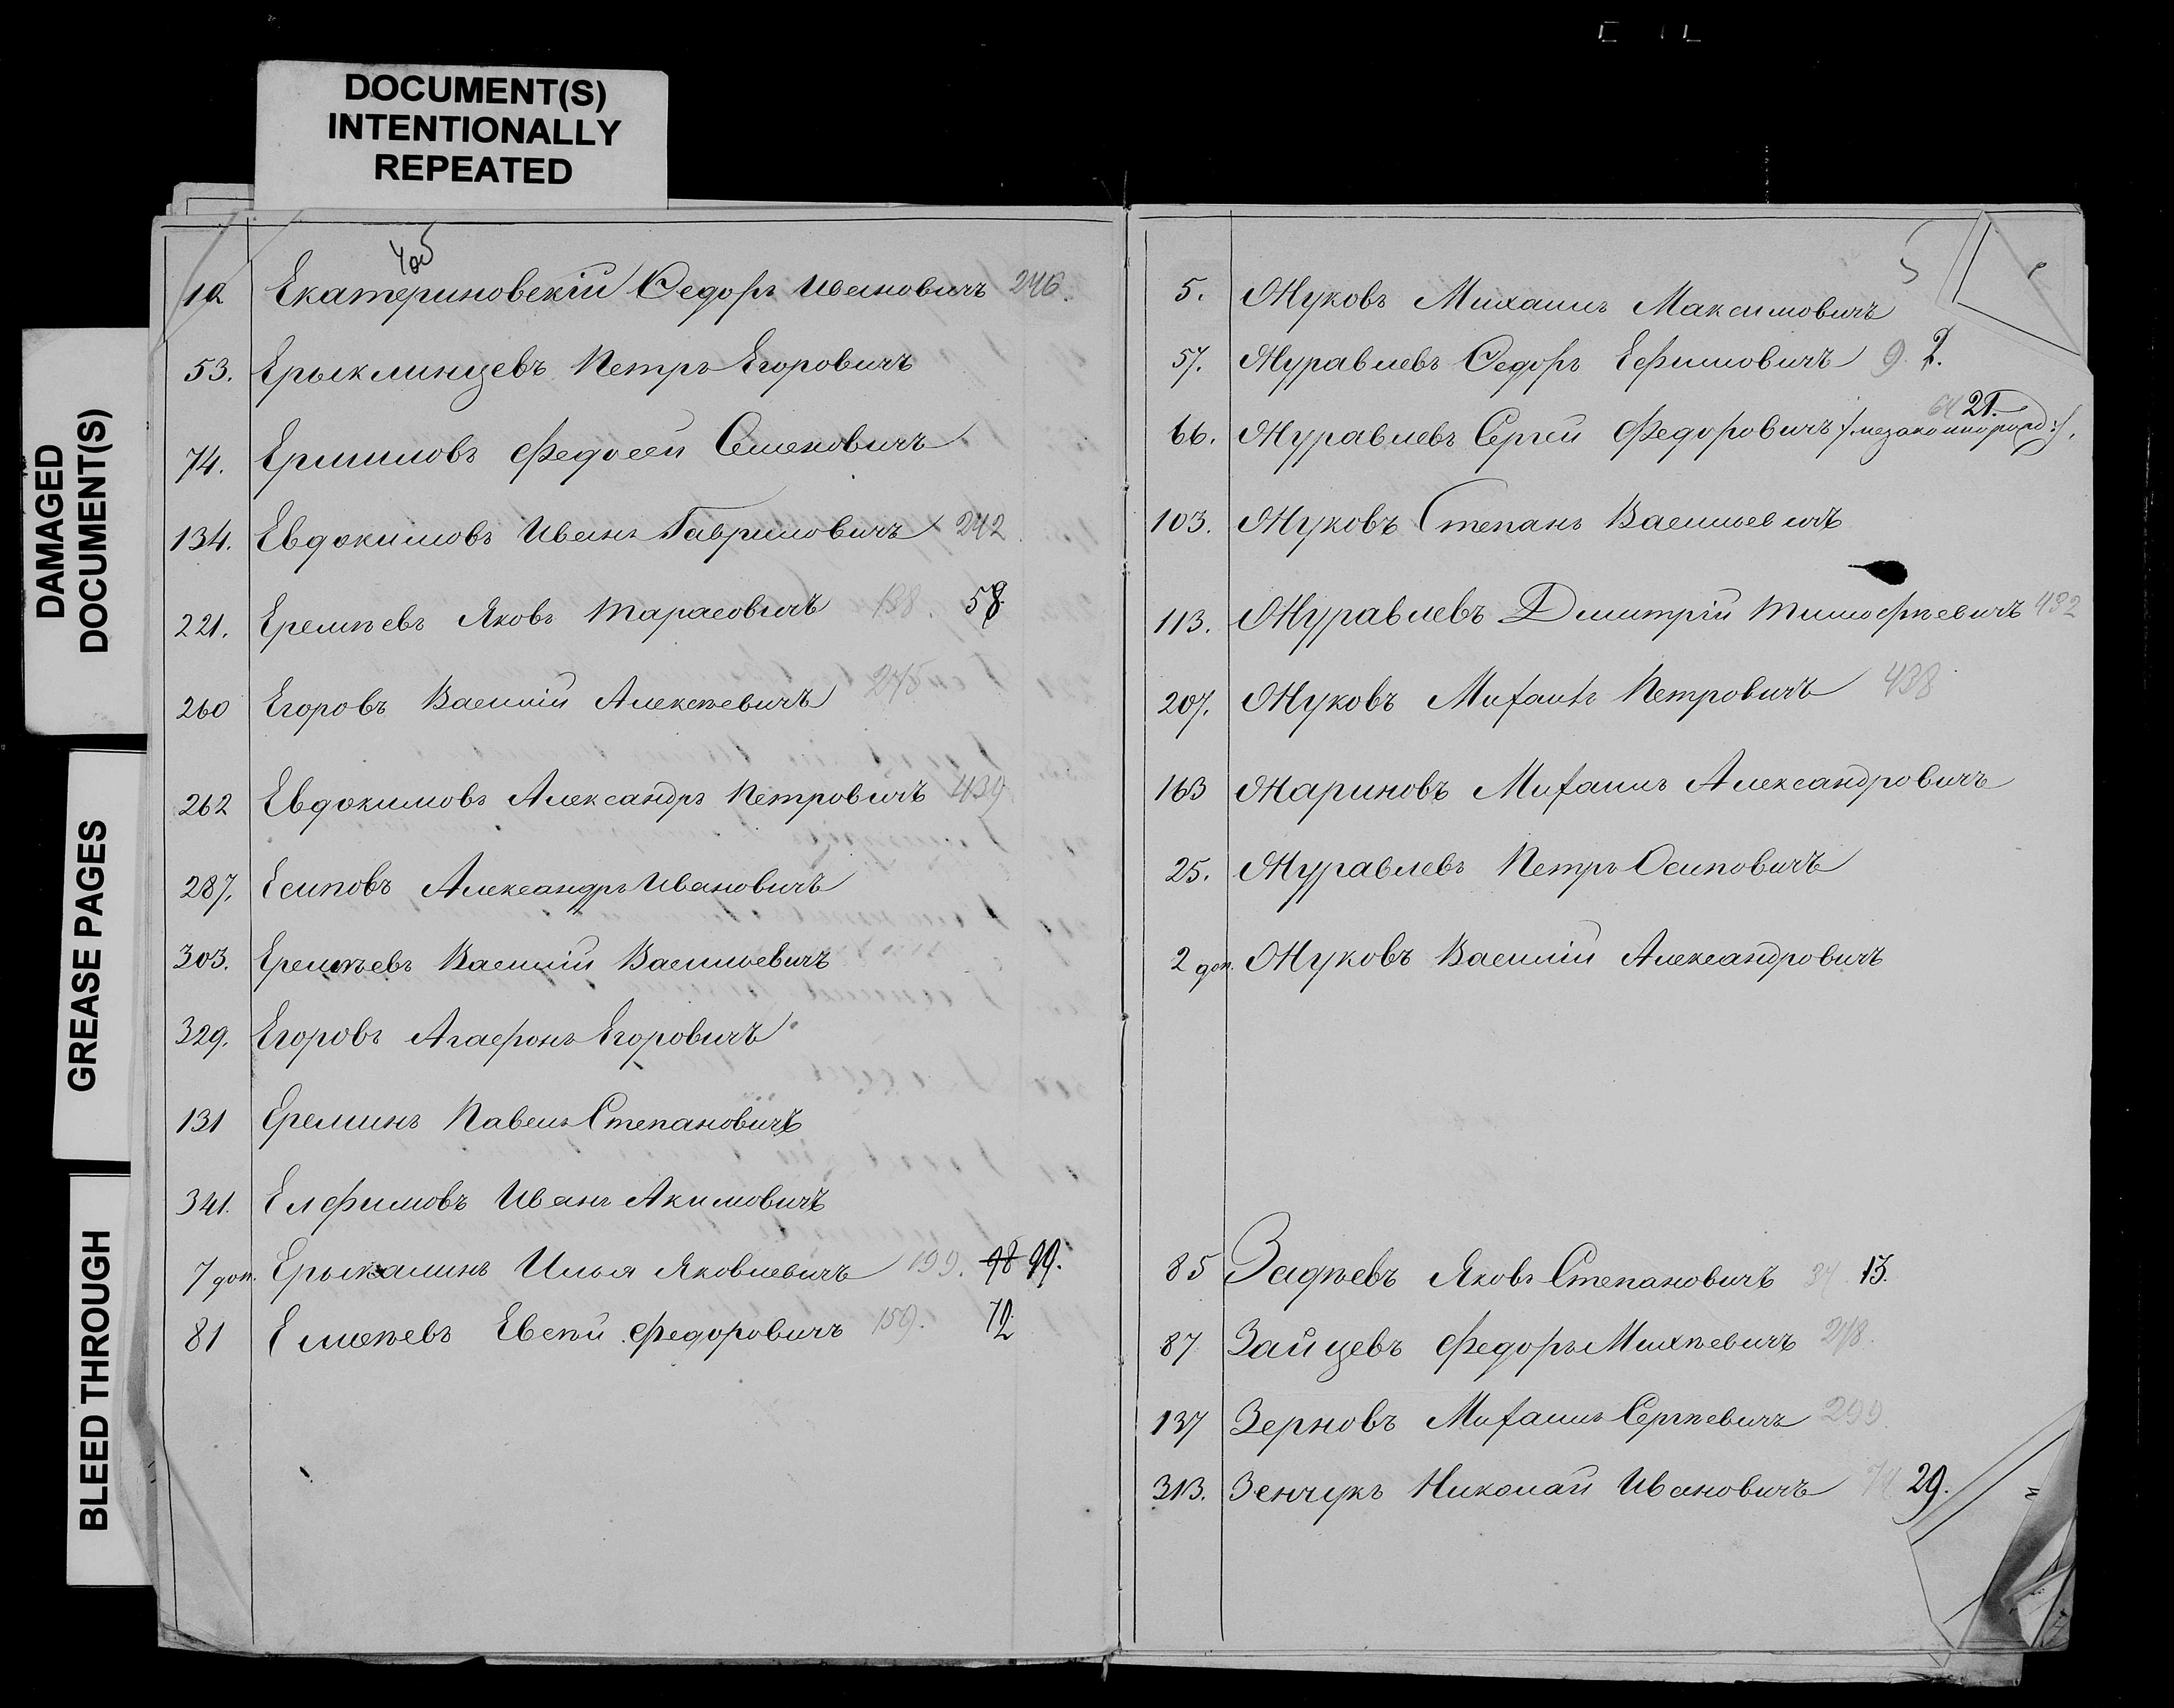 DOCUMENT(S)
INTENTIONALLY
REPEATED
DAMAGED
DOCUMENT(S)
GREASE PAGES
BLEED THROUGH
405
10 Екатериновскій Федоръ Ивановичъ 246.
53. Ерыклинцевъ Петръ Егоровичъ
74. Ермиловъ Федосей Семеновичъ
134. Евдокимовъ Иванъ Гавриловичъ 242.
221. Еремѣевъ Яковъ Тарасовичъ 138. 58.
260 Егоровъ Василій Алексѣевичъ 245
262 Евдокимовъ Александръ Петровичъ 439
287. Есиповъ Александръ Ивановичъ
303. Еремѣевъ Василій Васильевичъ
329. Егоровъ Агафонъ Егоровичъ
131 Ереминъ Павелъ Степановичъ
341. Елфимовъ Иванъ Акимовичъ
7 доп. Ерыкалинъ Илья Яковлевичъ 199. 98 99.
81 Елисѣевъ Евсѣй Федоровичъ 159. 72.
5. Жуковъ Михаилъ Максимовичъ
57. Журавлевъ Федоръ Ефимовичъ 9. 2.
64 21.
66. Журавлевъ Сергѣй Федоровичъ /:незаконнорожд:/.
103. Жуковъ Степанъ Васильевичъ
113. Журавлевъ Дмитрій Тимофѣевичъ 432
207. Жуковъ Михаилъ Петровичъ 438
163 Жариновъ Михаилъ Александровичъ
25. Журавлевъ Петръ Осиповичъ
2 доп. Жуковъ Василій Александровичъ
85 Задѣевъ Яковъ Степановичъ 34 13.
87 Зайцевъ Федоръ Михѣевичъ 248.
137 Зерновъ Михаилъ Сергѣевичъ 299.
313. Зенчукъ Николай Ивановичъ 29.